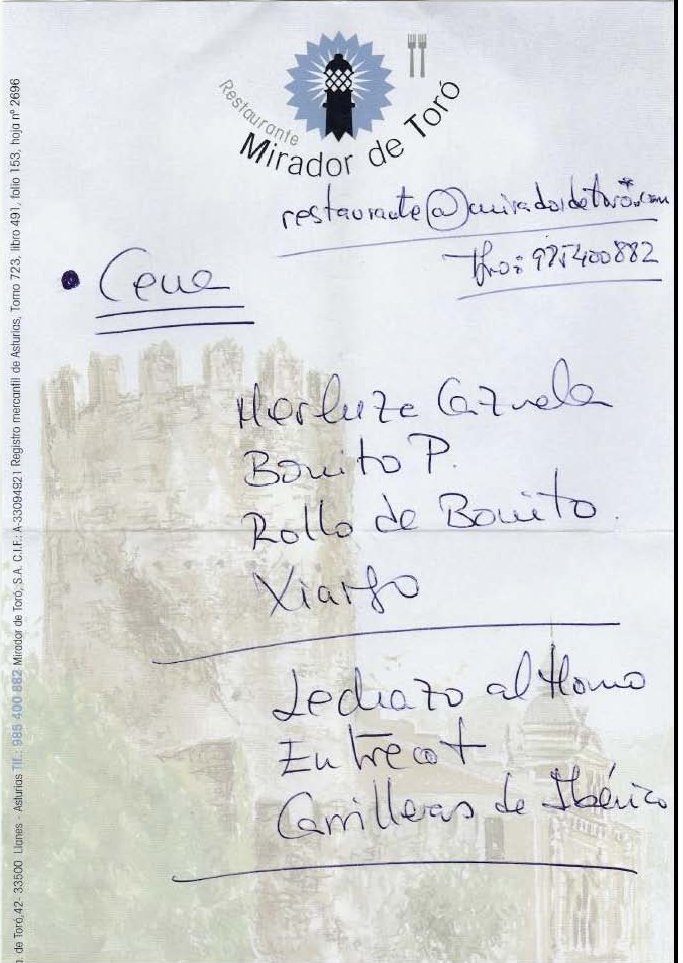 Restaurante
Mirador de Toró
restaurante@miradordetoró.com
Tfno: 985400882
• Cena
Merluza Cazuela
Bonito P.
Rollo de Bonito.
Xiargo
Lechazo al Horno
Entrecot
Carrilleras de Ibérico
de Toró,42- 33500 Llanes - Asturias Tlf.: 985 400 882 Mirador de Toró, S.A. C.I.F.: A-33094921 Registro mercantil de Asturias, Tomo 723, libro 491, folio 153, hoja nº 2696